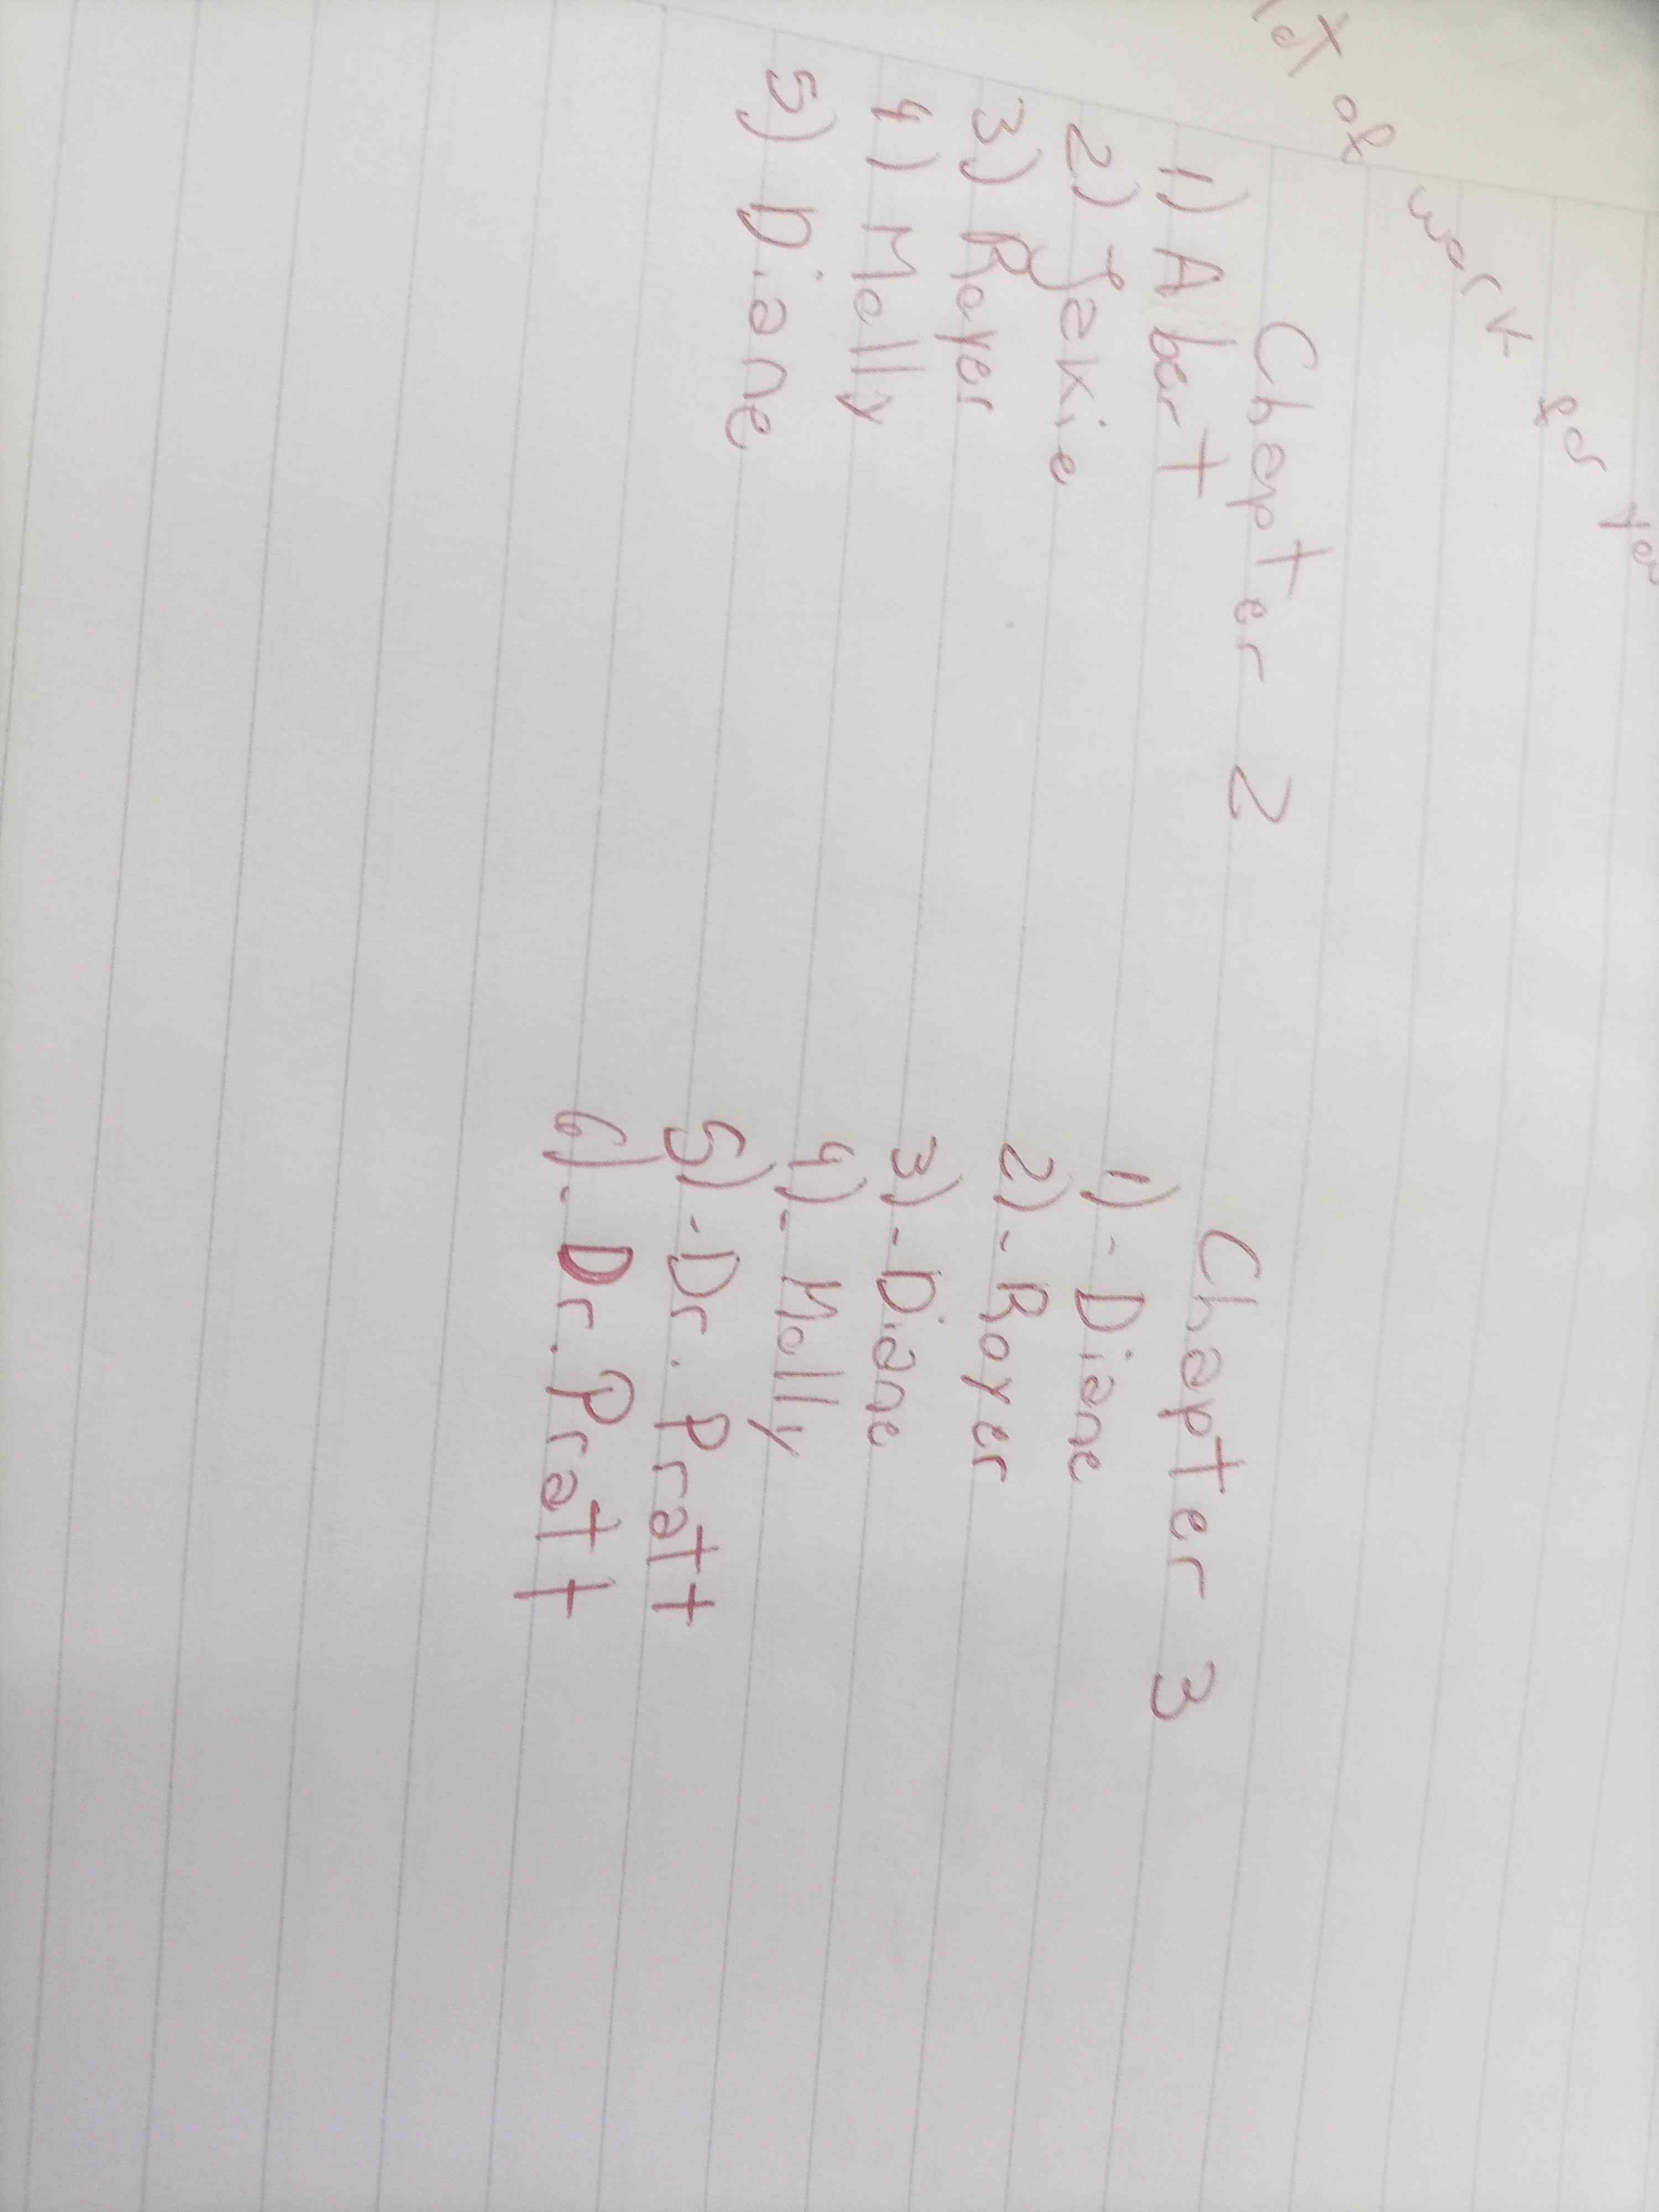 work
Chapter 2
1) Abert
2) Jakie
3) Royer
4) Molly
5) Diane
Chapter 3
1) - Diane
2) - Royer
3) - Diane
4) - Molly
5) - Dr. Pratt
6) - Dr. Pratt